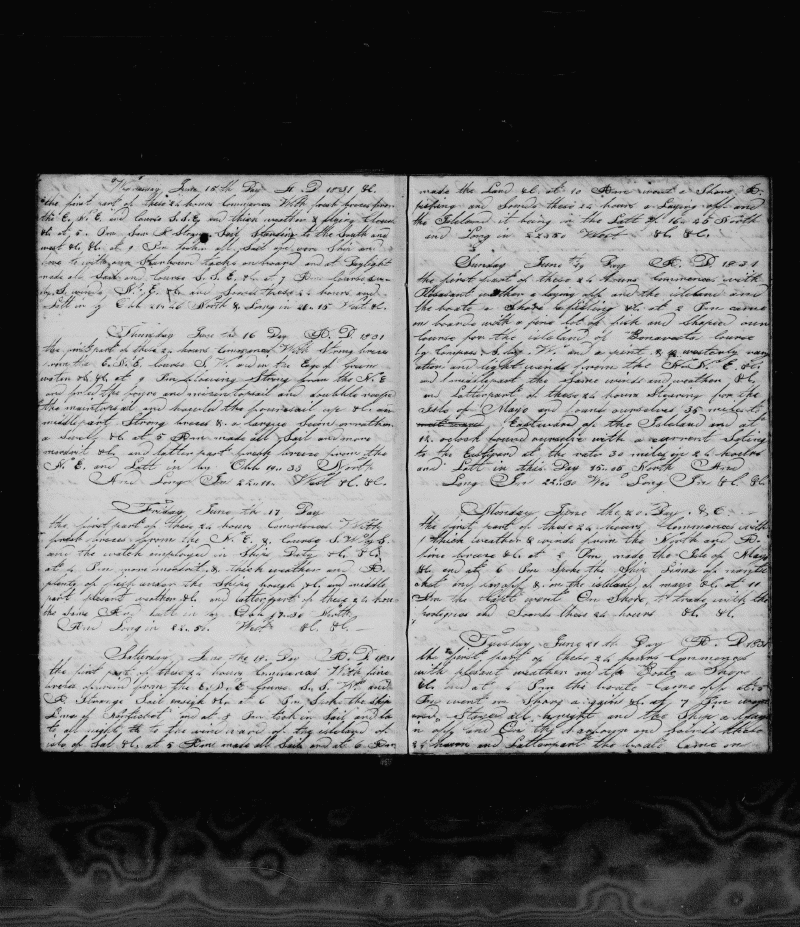 Wednesday June 15th Day A. D 1831 &c.
the first part of these 24 hours Commences With fresh breezes from
the E. N. E and Course S.S.E and thick weather & flying clouds
&c at 5. Pm Saw A Strange Sail Standing to the South and
west &c &c at 9 Pm taken all Sail of our Ship and
hove to with our Starboard tacks on board and at Daylight
made all Sail and Course S. S. E. &c at 7
by S. winds N. E. &c and Soends these 24 hours and
Latt in by Obs 21.46 North & Long in 21.15 West &c.
Thursday June the 16 Day A. D 1831
the first part of these 24 hours Commences With Strong breeze
from the E.N.E Course S. W.
water &c &c at 9 Pm blowing Strong from the N. E
and furld the foresail and mizzentopsail and doubble reeft
the maintopsail and hauled the foresail up &c and
middle part Strong breeze & a large Sea on
&c at 5 Am made all Sail and more
moderate &c and latter part fresh breeze from the
N. E. and Latt in by Obs 19.33 North
And Long In 22.10. West &c &c.
Friday June the 17 Day
the first part of these 24 hours Commences With
fresh breezes from the N. E. & Course S. W by S.
and the watch employed in Ships Duty &c &c
at 4 Pm more moderate & thick weather and A
plenty of fish under the Ships bough &c and middle
part plesent weather &c and latter part of these 24 hours
the Same And Latt in by Obs 17.30 North
And Long in 22.51. West &c &c.
Saturday June the 18. Day A. D. 1831
the first part of these 24 hours Commences With fine
breezes from the E. N. E Course S. S. W. and
A Strange Sail &c at 6 Pm the Ship
Lima of Nantucket and at 9 Pm took in Sail and
to all night to the wind ward of the island of
isle of Sal &c at 5 Am made all Sail and at 6 Am
made the Land &c at 10 Am went a Shore A
fishing and Soends these 24 hours a Laying off and
the Islelend it being in the Latt of 16. 45 North
and Long in 22.50 West &c &c.
Sunday June 19 Day A. D. 1831
the first part of these 24 hours Commences with
Pleasant weather a laying off the islelend and
the boats a Shore a fishing &c at 2 Pm came
on board with a fine lot of fish and Shaped our
Course for the islelend of Bonavista Course
by Compass S. by W. and a point & westerly vari
ation and light winds from the N. N. E. &c
and middle part the Same winds and weather &c
and latter part of these 24 hours Steering for the
Isle of Mayo and found ourselves 35 miles to
Eastward of the Islelend and at
12 oclock found ourselves with a current Seting
to the Eastward at the rate 30 miles in 24 hours
and Latt in this Day 15.05 North And
Long In 22.30 West Long In &c &c.
Monday June the 20. Day. &c
the first part of these 24 hours Commences with
thick weather & winds from the North and A
fine breeze &c at 2 Pm made the Isle of Mayo
&c and at 6 Pm Spoke the Ship Lima of nantu
cket and & in the islelend of mayo &c at 11
Am the Capt went On Shore, to trade with the
portugies and Soends these 24 hours &c &c.
Tuesday June 21 th Day A. D 1831
the first part of these 24 hours Commences
with plesent weather and the Boats a Shore
&c and at 4 Pm the boats Came off at 5
Pm went on Shore a gain &c at 7 Pm
Stayed all knight and the Ship a laying
off and On the harbour and Soends these
24 hours and latter part the boats Came on